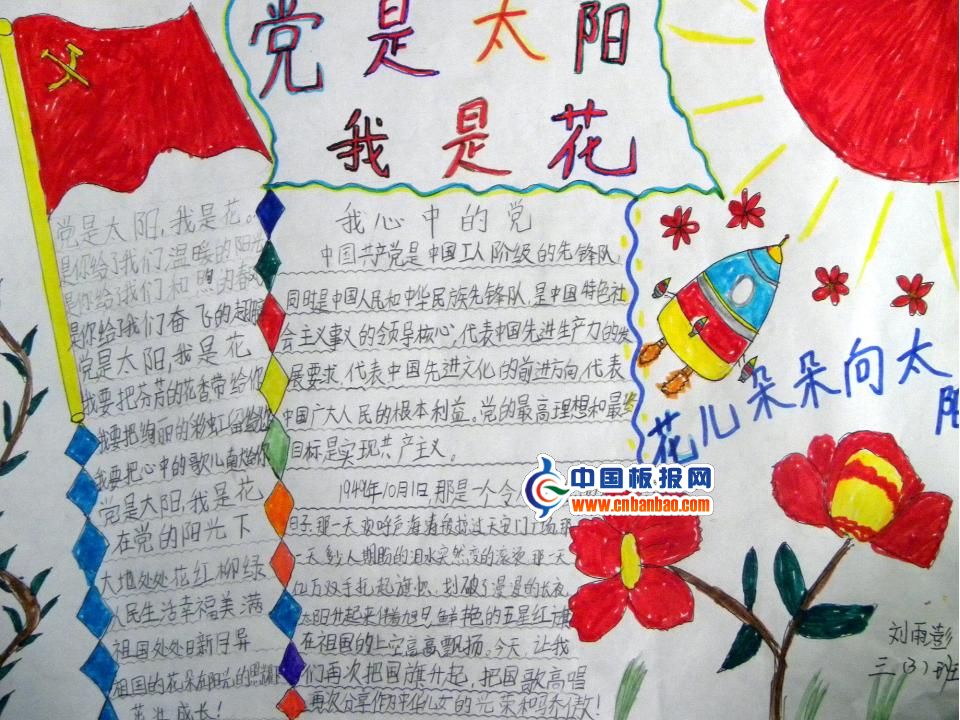 党是太阳
我是花
党是太阳,我是花。
是你给了我们温暖的阳光
是你给我们和煦的春
是你给了我们奋飞的翅膀
党是太阳,我是花
我要把芬芳的花香带给你
我要把绚丽的彩虹留给你
我要把心中的歌儿献给你
党是太阳,我是花
在党的阳光下
大地处处花红柳绿
人民生活幸福美满
祖国处处日新月异
祖国的花朵在阳光的照耀下
茁壮成长!
我心中的党
中国共产党是中国工人阶级的先锋队,
同时是中国人民和中华民族先锋队,是中国特色社
会主义事义的领导核心,代表中国先进生产力的发
展要求,代表中国先进文化的前进方向,代表
中国广大人民的根本利益。党的最高理想和最终
目标是实现共产主义。
1949年10月1日,那是一个令人
日子,那一天,欢呼声海
一天,多少人期盼的泪水突然变的滚烫,那一天
亿万双手扎起旗帜,划破了漫漫的长夜
太阳升起来伴着旭日,鲜艳的五星红旗
在祖国的上空高高飘扬。今天,让我
们再次把国旗升起,把国歌高唱
再次分享作为中华儿女的光荣和骄傲!
花儿朵朵向太阳
中国板报网
www.cnbanbao.com
刘雨澎
三(3)班